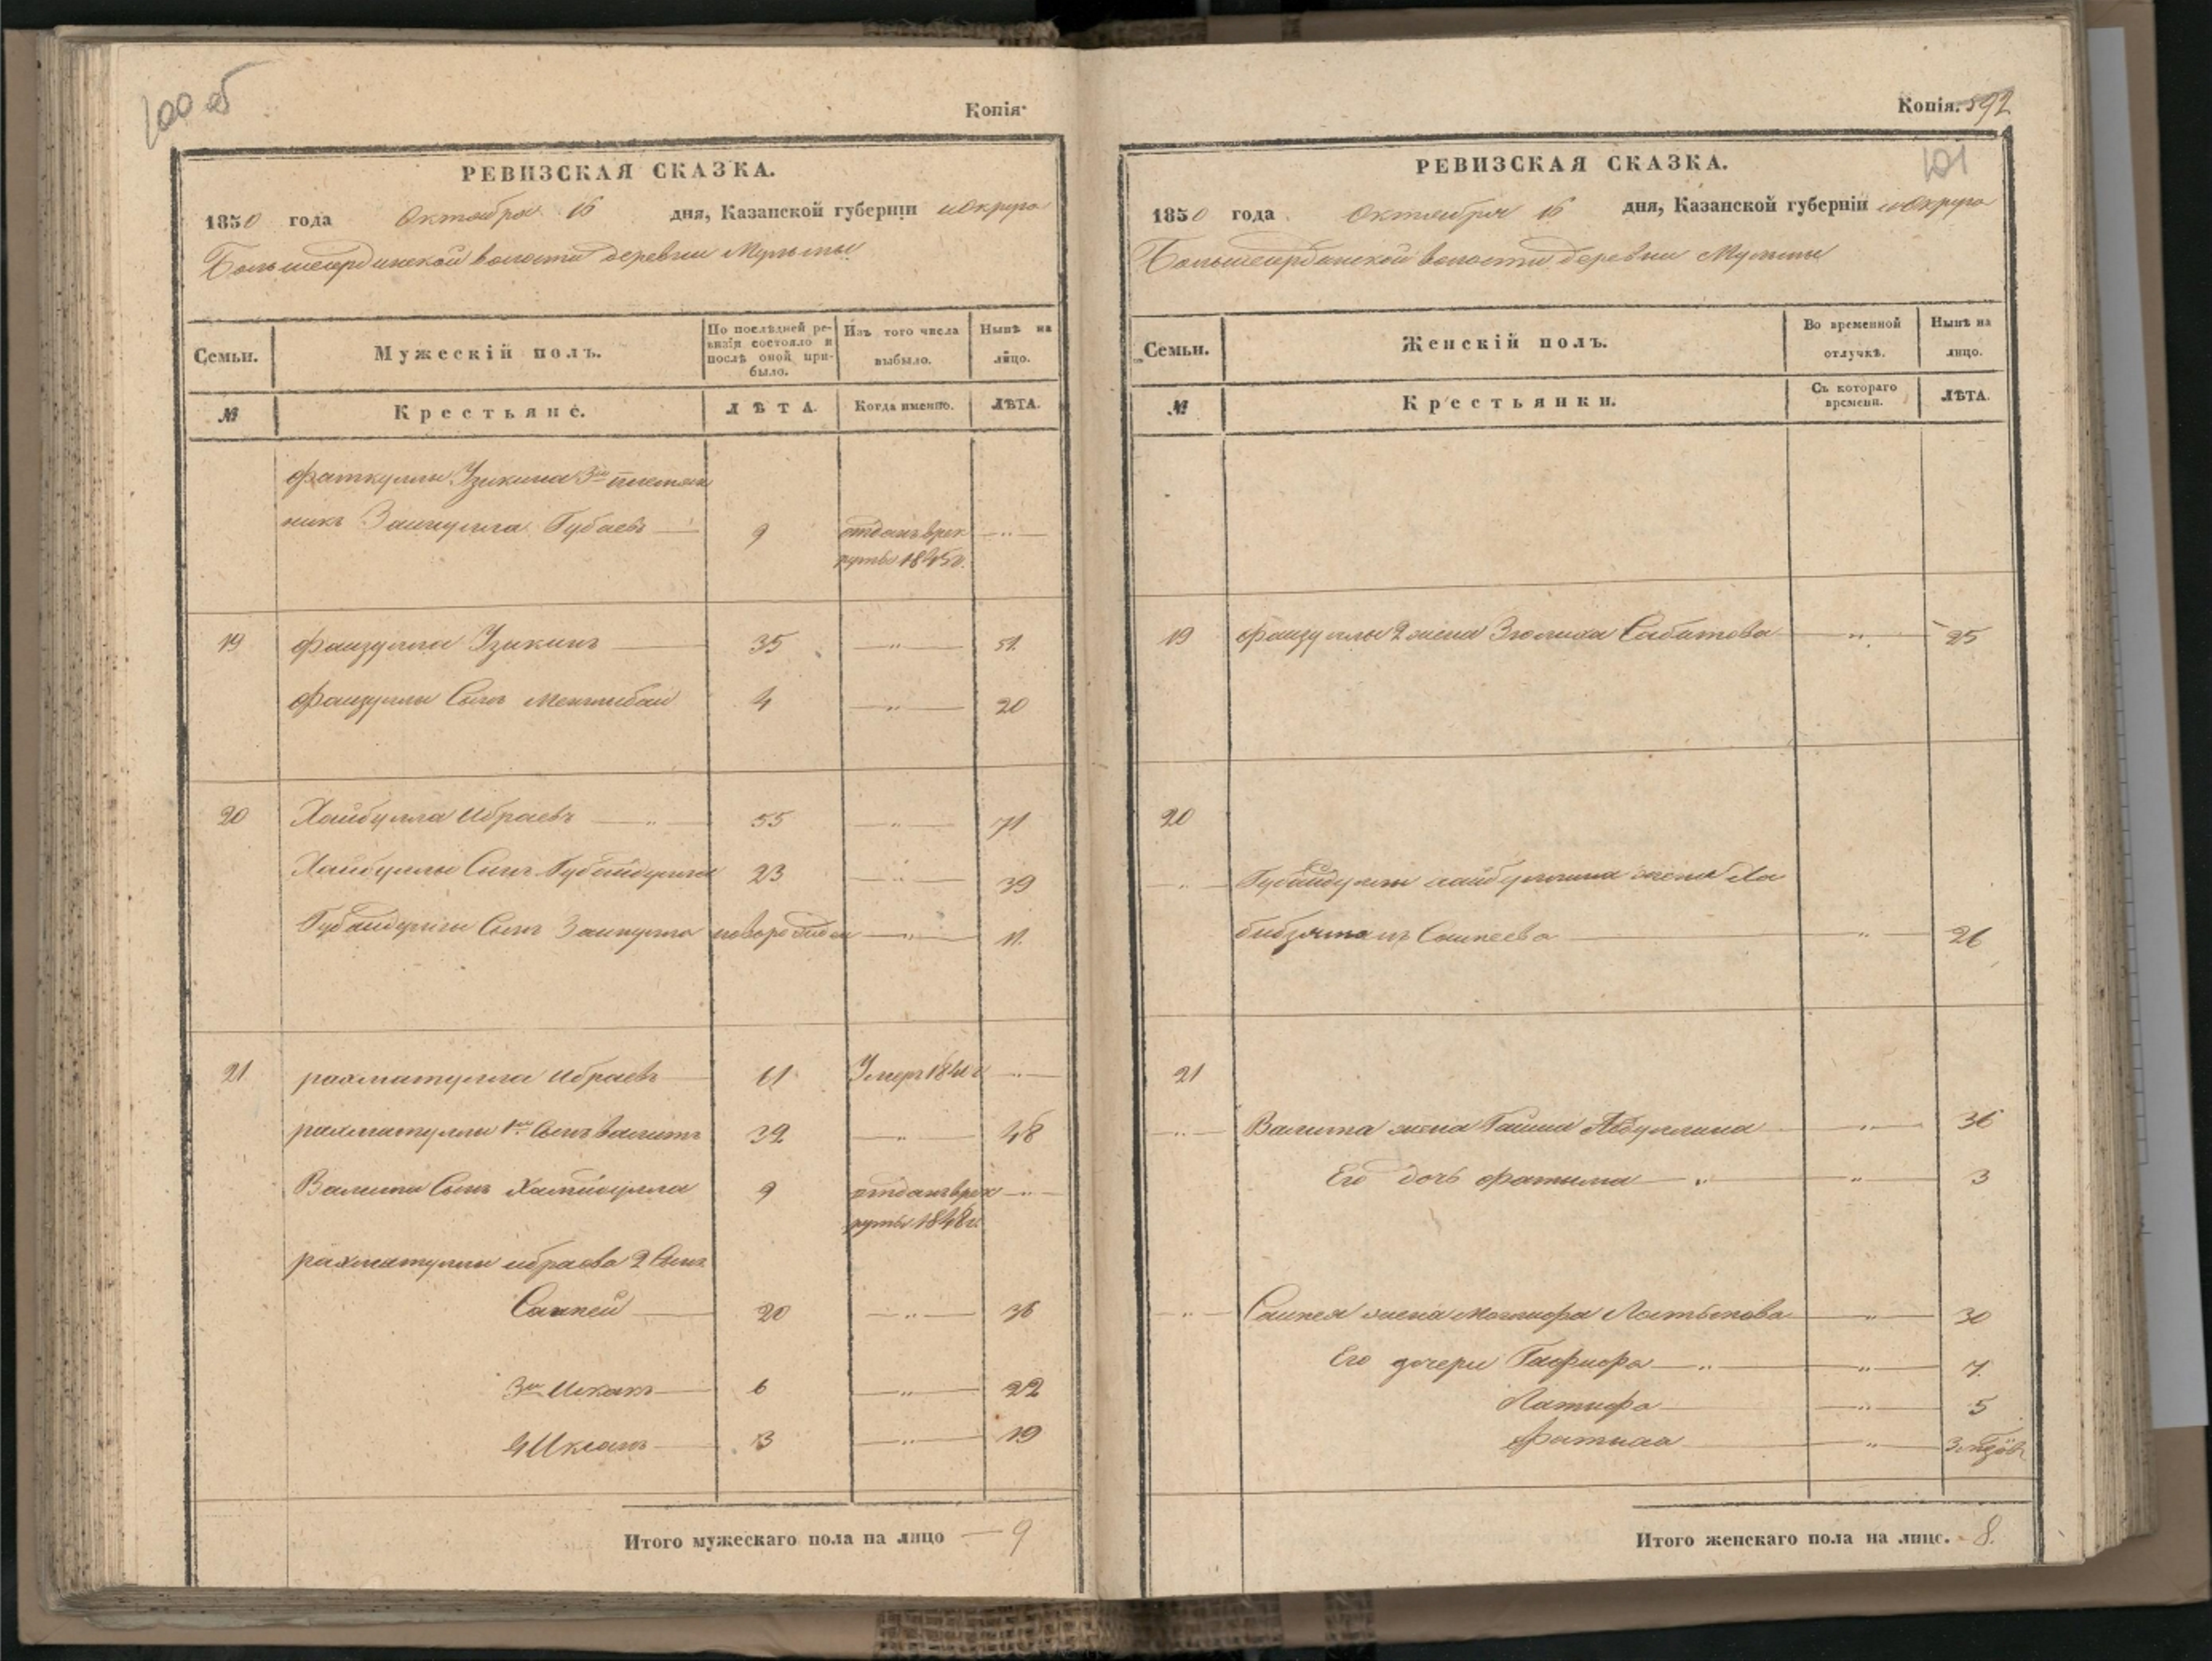 100 об
Копія
РЕВИЗСКАЯ СКАЗКА.
1850 года Октября 16 дня, Казанской губерніи и Округа
Большеатрдинской волости деревни Мульмы
Семьи. Мужескій полъ. По послѣдней ревизіи состояло и послѣ оной прибыло. Изъ того числа выбыло. Нынѣ на лицо.
№ Крестьяне. ЛѢТА. Когда именно. ЛѢТА.
Фаткуллы Узикина 3й племян
никъ Зайнулла Губаевъ 9 отданъ врек
руты 1845г.
19 Файзулла Узикинъ 35 — " — 51.
Файзуллы Сынъ Менглибай 4 — " — 20
20 Хайбулла Ибраевъ — " — 55 — " — 71
Хайбуллы Сынъ Губайдулла 23 — " — 39
Губайдуллы Сынъ Зайнулла новорожден — " — 11.
21 рахматулла Ибраевъ 61 Умеръ 1841г — " —
рахматуллы 1й Сынъ Валитъ 32 — " — 48
Валита Сынъ Хамидулла 9 отданъ врек — " —
руты 1848г.
рахматуллы ибраева 2 Сынъ
Сапкей 20 — " — 36
3й Исхакъ 6 — " — 22
4 Иксанъ 3 — " — 19
Итого мужескаго пола на лицо — 9
Копія. 592
101
РЕВИЗСКАЯ СКАЗКА.
1850 года Октября 16 дня, Казанской губерніи и Округа
волости деревни Мульмы
Семьи. Женскій полъ. Во временной отлучкѣ. Нынѣ на лицо.
№ Крестьянки. Съ котораго времени. ЛѢТА.
19 Файзуллы 2 жена Зюлиха Сабитова — " — 25
20
— " — Губайдуллы хайбуллина жена Ха
бибзямалъ Сапкеева — " — 26
21
— " — Валита жена Гайша Абдуллина — " — 36
Его дочь Фатыма — " — " — 3
— " — Сапкея жена Магпиофа Латыпова — " — 30
Его дочери Гафиофа — " — " — 7.
Латифа — " — 5
Фатиха — " — 3
Итого женскаго пола на лицо. - 8.